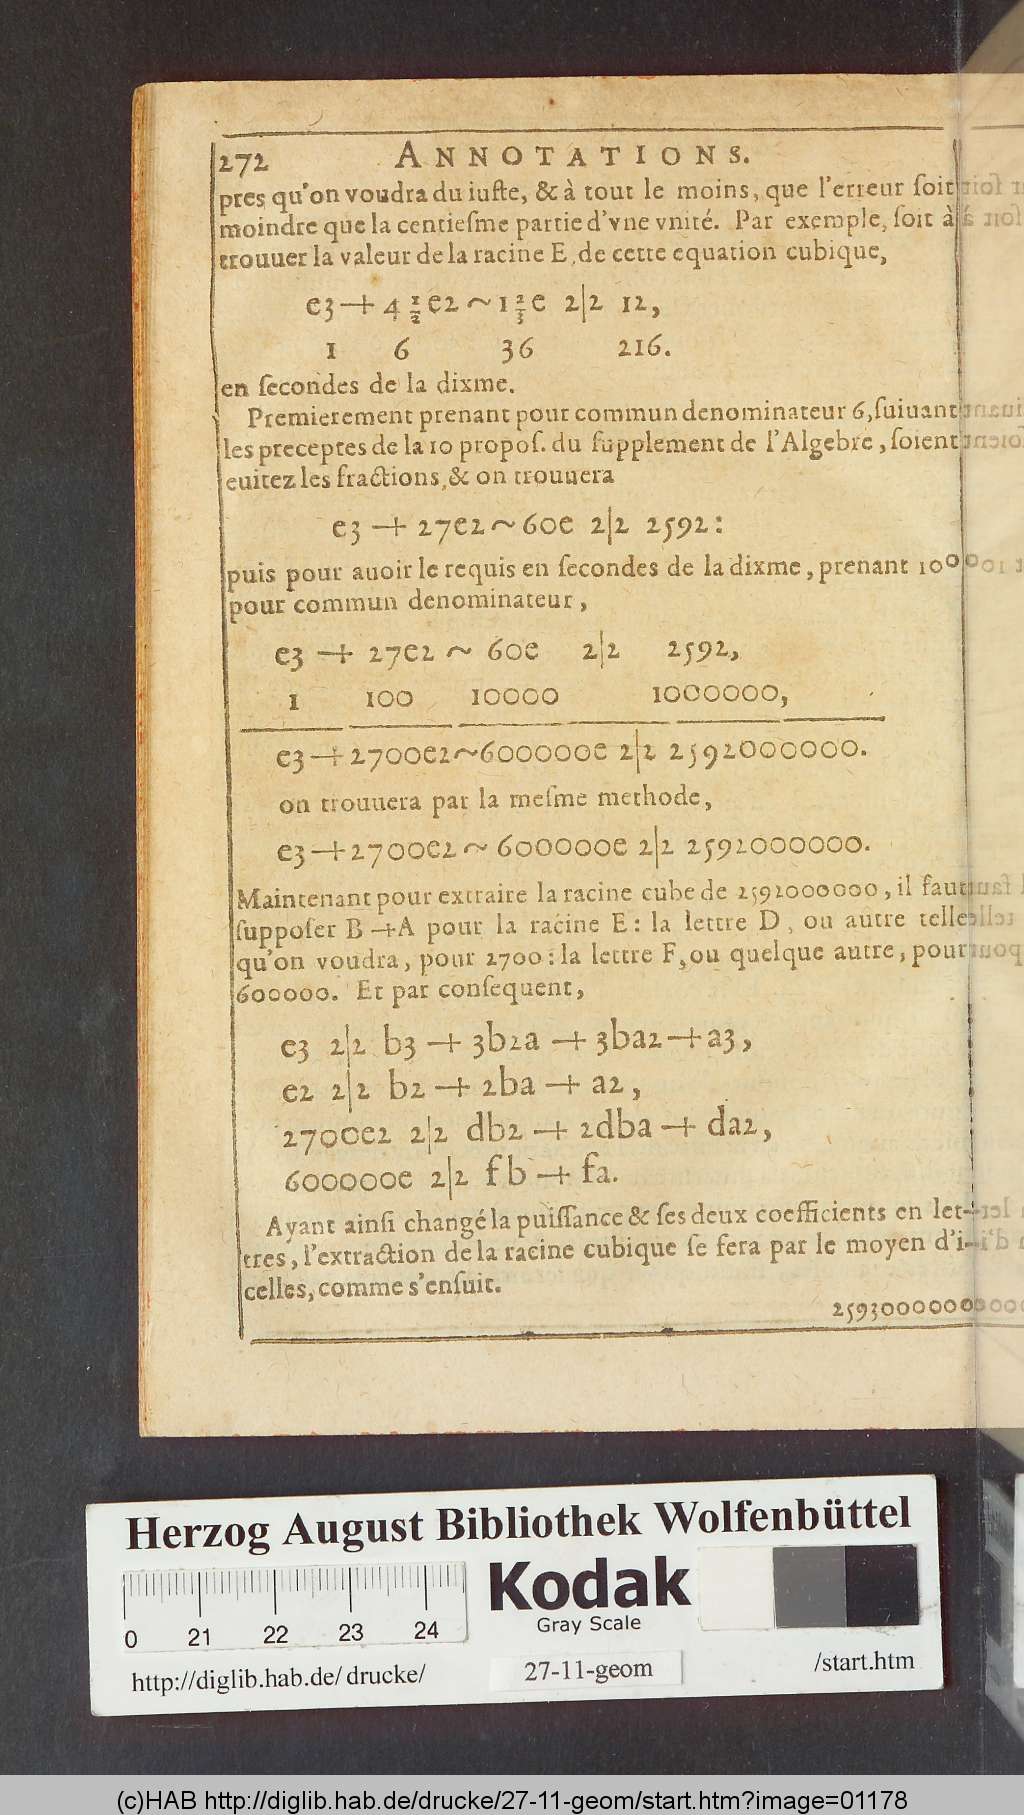 272 ANNOTATIONS.
pres qu'on voudra du iuste, & à tout le moins, que l'erreur soit
moindre que la centiesme partie d'vne vnité. Par exemple, soit à
trouuer la valeur de la racine E, de cette equation cubique,
e3 + 4 1/2 e2 ~ 1 2/3 e 2|2 12,
1 6 36 216.
en secondes de la dixme.
Premierement prenant pour commun denominateur 6, suiuant
les preceptes de la 10 propos. du supplement de l'Algebre, soient
euitez les fractions, & on trouuera
e3 + 27e2 ~ 60e 2|2 2592:
puis pour auoir le requis en secondes de la dixme, prenant 100
pour commun denominateur,
e3 + 27e2 ~ 60e 2|2 2592,
1 100 10000 1000000,
e3 + 2700e2 ~ 600000e 2|2 2592000000.
on trouuera par la mesme methode,
e3 + 2700e2 ~ 600000e 2|2 2592000000.
Maintenant pour extraire la racine cube de 2592000000, il faut
supposer B + A pour la racine E: la lettre D, ou autre telle
qu'on voudra, pour 2700: la lettre F, ou quelque autre, pour
600000. Et par consequent,
e3 2|2 b3 + 3b2a + 3ba2 + a3,
e2 2|2 b2 + 2ba + a2,
2700e2 2|2 db2 + 2dba + da2,
600000e 2|2 fb + fa.
Ayant ainsi changé la puissance & ses deux coefficients en let-
tres, l'extraction de la racine cubique se fera par le moyen d'i-
celles, comme s'ensuit.
2593000000
Herzog August Bibliothek Wolfenbüttel
Kodak
Gray Scale
0 21 22 23 24
http://diglib.hab.de/ drucke/ 27-11-geom /start.htm
(c)HAB http://diglib.hab.de/drucke/27-11-geom/start.htm?image=01178